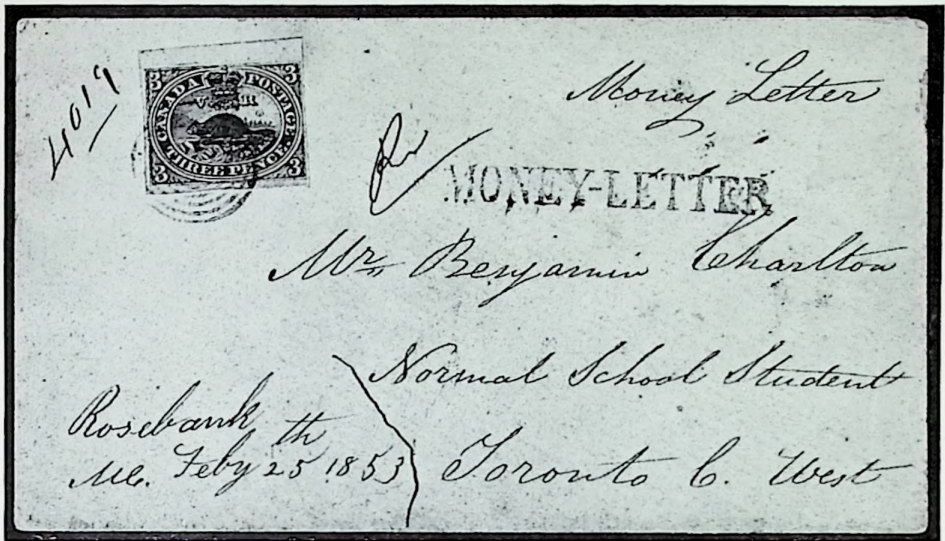 4019
3 CANADA POSTAGE 3
3 THREE PENCE 3
Money Letter
MONEY-LETTER
Mr Benjamin Charlton
Normal School Student
Toronto C. West
Rosebank
Feby 25th 1853